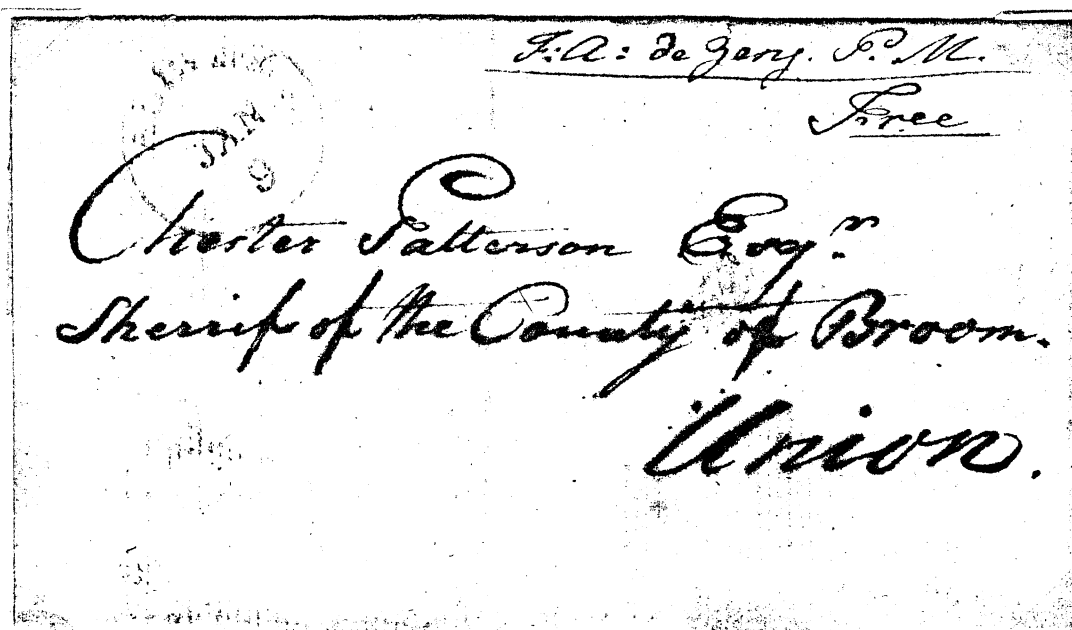 F: A: de Zeng. P. M.
Free
JAN
9
Chester Patterson Esqr.
Sherrif of the County of Broom.
Union.